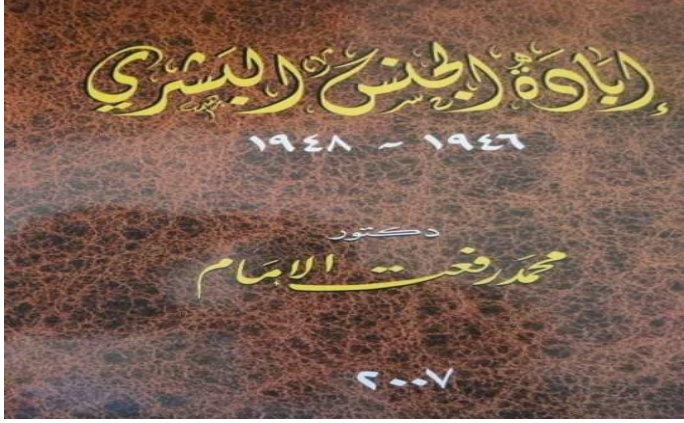 إبادة الجنس البشري
١٩٤٦ - ١٩٤٨
دكتور
محمد رفعت الإمام
٢٠٠٧